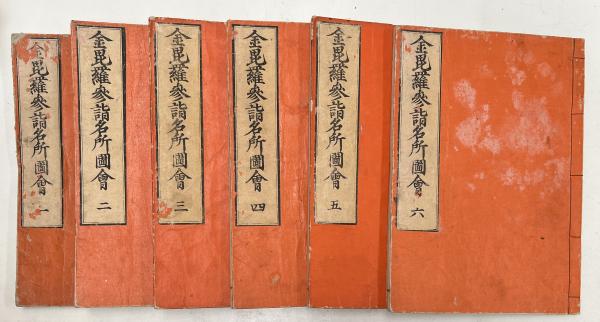 金毘羅參詣名所圖會 一
金毘羅參詣名所圖會 二
金毘羅參詣名所圖會 三
金毘羅參詣名所圖會 四
金毘羅參詣名所圖會 五
金毘羅參詣名所圖會 六